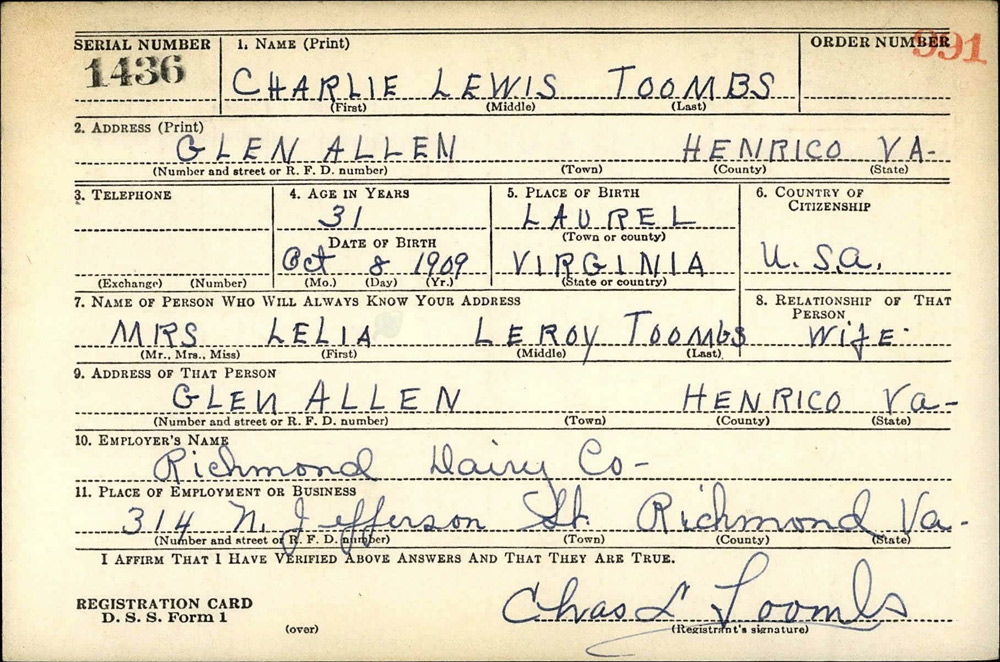 SERIAL NUMBER 1. NAME (Print) ORDER NUMBER 991
1436 CHARLIE LEWIS TOOMBS
(First) (Middle) (Last)
2. ADDRESS (Print)
GLEN ALLEN HENRICO VA-
(Number and street or R. F. D. number) (Town) (County) (State)
3. TELEPHONE 4. AGE IN YEARS 5. PLACE OF BIRTH 6. COUNTRY OF CITIZENSHIP
31 LAUREL
DATE OF BIRTH (Town or county)
Oct 8 1909 VIRGINIA U. S.a.
(Exchange) (Number) (Mo.) (Day) (Yr.) (State or country)
7. NAME OF PERSON WHO WILL ALWAYS KNOW YOUR ADDRESS 8. RELATIONSHIP OF THAT PERSON
MRS LELIA LEROY TOOMBS WifE-
(Mr., Mrs., Miss) (First) (Middle) (Last)
9. ADDRESS OF THAT PERSON
GLEN ALLEN HENRICO Va-
(Number and street or R. F. D. number) (Town) (County) (State)
10. EMPLOYER'S NAME
Richmond Dairy Co-
11. PLACE OF EMPLOYMENT OR BUSINESS
314 N. Jefferson St Richmond Va-
(Number and street or R. F. D. number) (Town) (County) (State)
I AFFIRM THAT I HAVE VERIFIED ABOVE ANSWERS AND THAT THEY ARE TRUE.
REGISTRATION CARD
D. S. S. Form 1 Chas L Toombs
(over) (Registrant's signature)